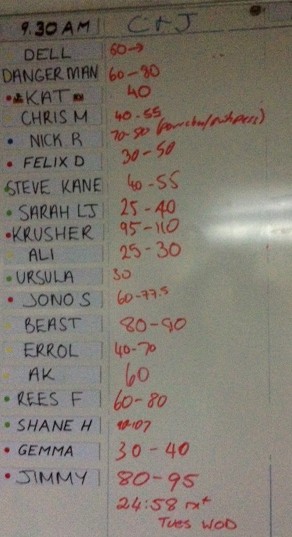 9.30 AM C+J
DELL 60→
DANGERMAN 60-80
KAT 40
CHRIS M 40-55
NICK R 70-80
FELIX D 30-50
STEVE KANE 40-55
SARAH LJ 25-40
KRUSHER 95-110
ALI 25-30
URSULA 30
JONO S 60-77.5
BEAST 80-90
ERROL 40-70
AK 60
REES F 60-80
SHANE H
GEMMA 30-40
JIMMY 80-95
24:58 rx+
TUES WOD